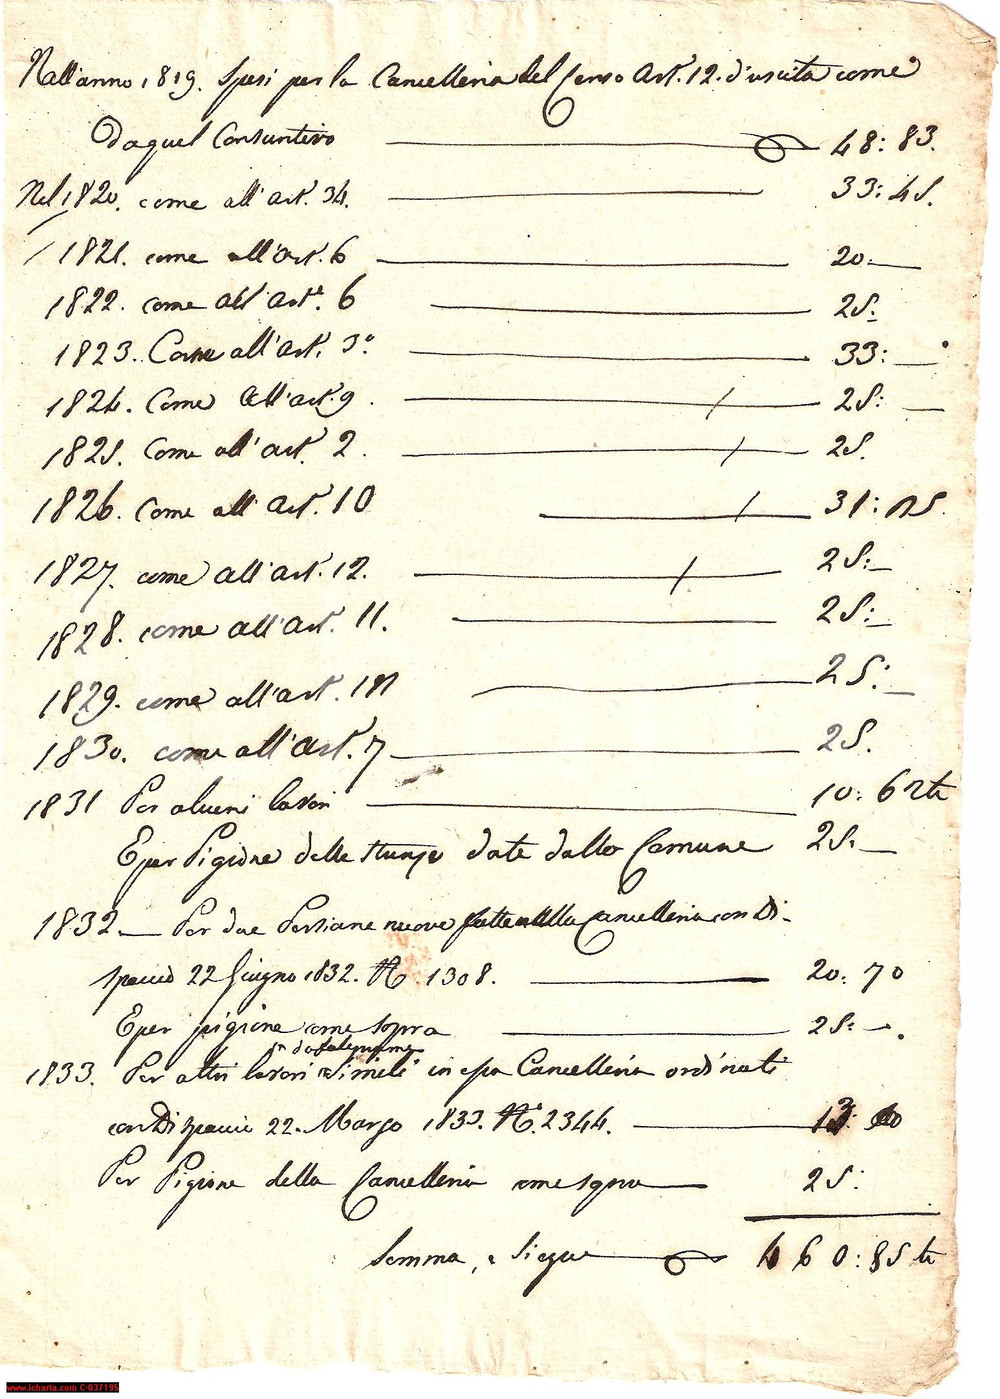 Nell'anno 1819. Spesi per la Cancelleria del Censo Art. 12. d'uscita come
da quel Consuntivo 48: 83.
Nel 1820. come all'art. 34. 33: 45.
1821. come all'art. 6 20:
1822. come all'art. 6 25:
1823. Come all'art. 3° 33:
1824. Come all'art. 9. 25:
1825. Come all'art. 2. 25.
1826. Come all'art. 10 31:
1827. come all'art. 12. 25:
1828. come all'art. 11. 25:
1829. come all'art. 25:
1830. come all'art. 7 25.
1831 Per alcuni lavori 10: 62
E per Pigione delle Stanze date dalla Comune 25:
1832 Per due Persiane nuove fatte alla Cancelleria con Di-
spaccio 22 Giugno 1832. N. 1308. 20: 70
E per pigione come sopra 25:
da falegname
1833. Per altri lavori simili in essa Cancelleria ordinati
con Dispaccio 22. Marzo 1833. N. 2344. 13:
Per Pigione della Cancelleria come sopra 25:
Somma, e Siegue 460: 85
www.icharta.com C-037195